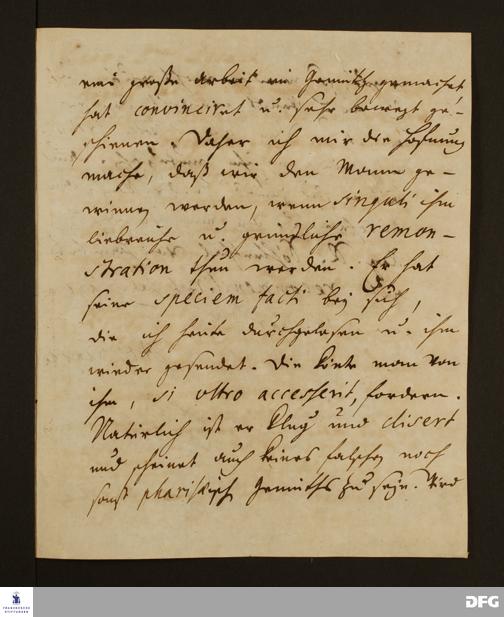 eine große arbeit im Gemüth gemachet,
hat convinciret u. sehr bewegt ge-
schienen. Daher ich mir die Hofnung
mache, daß wir den Mann ge-
winnen werden, wenn singuli ihm
liebreiche u. gründliche remon-
stration thun werden. Er hat
seine speciem facti bey sich,
die ich heute durchgelesen u. ihm
wieder gesendet. Die könte man von
ihm, si ultro accesserit, fordern.
Natürlich ist er klug und disert
und scheinet auch keines falschen noch
sonst pharisäisch Gemüths zu seyn. Wird
FRANCKESCHE
STIFTUNGEN
DFG